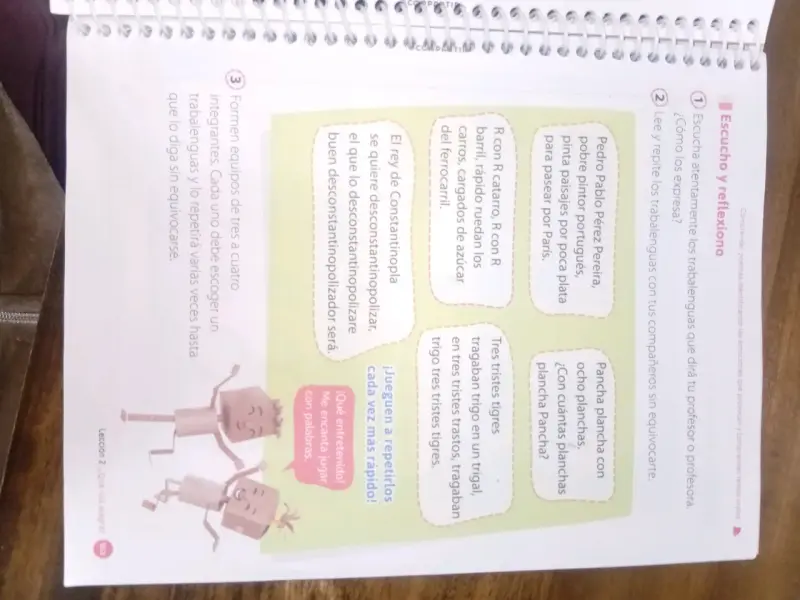 Escucho y reflexiono
1 Escucha atentamente los trabalenguas que dirá tu profesor o profesora.
¿Cómo los expresa?
2 Lee y repite los trabalenguas con tus compañeros sin equivocarte.
Pedro Pablo Pérez Pereira,
pobre pintor portugués,
pinta paisajes por poca plata
para pasear por París.
Pancha plancha con
ocho planchas.
¿Con cuántas planchas
plancha Pancha?
R con R catarro, R con R
barril, rápido ruedan los
carros, cargados de azúcar
del ferrocarril.
Tres tristes tigres
tragaban trigo en un trigal,
en tres tristes trastos, tragaban
trigo tres tristos tigres.
El rey de Constantinopla
se quiere desconstantinopolizar,
el que lo desconstantinopolizare
buen desconstantinopolizador será.
¡Jueguen a repetirlos
cada vez más rápido!
¡Qué entretenido!
Me encanta jugar
con palabras.
3 Formen equipos de tres a cuatro
integrantes. Cada uno debe escoger un
trabalenguas y lo repetirá varias veces hasta
que lo diga sin equivocarse.
Lección 2